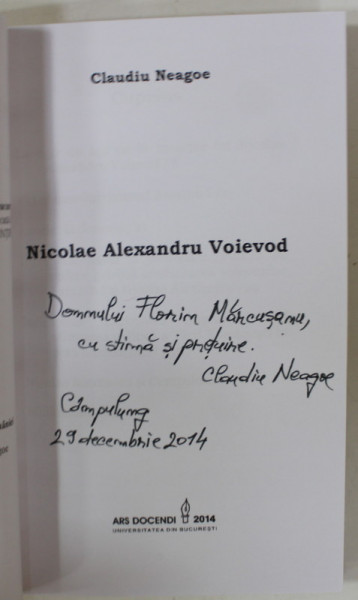 Claudiu Neagoe
Nicolae Alexandru Voievod
Domnului Florin Mărcușanu,
cu stimă și prețuire.
Claudiu Neagoe
Câmpulung
29 decembrie 2014
ARS DOCENDI 2014
UNIVERSITATEA DIN BUCUREȘTI